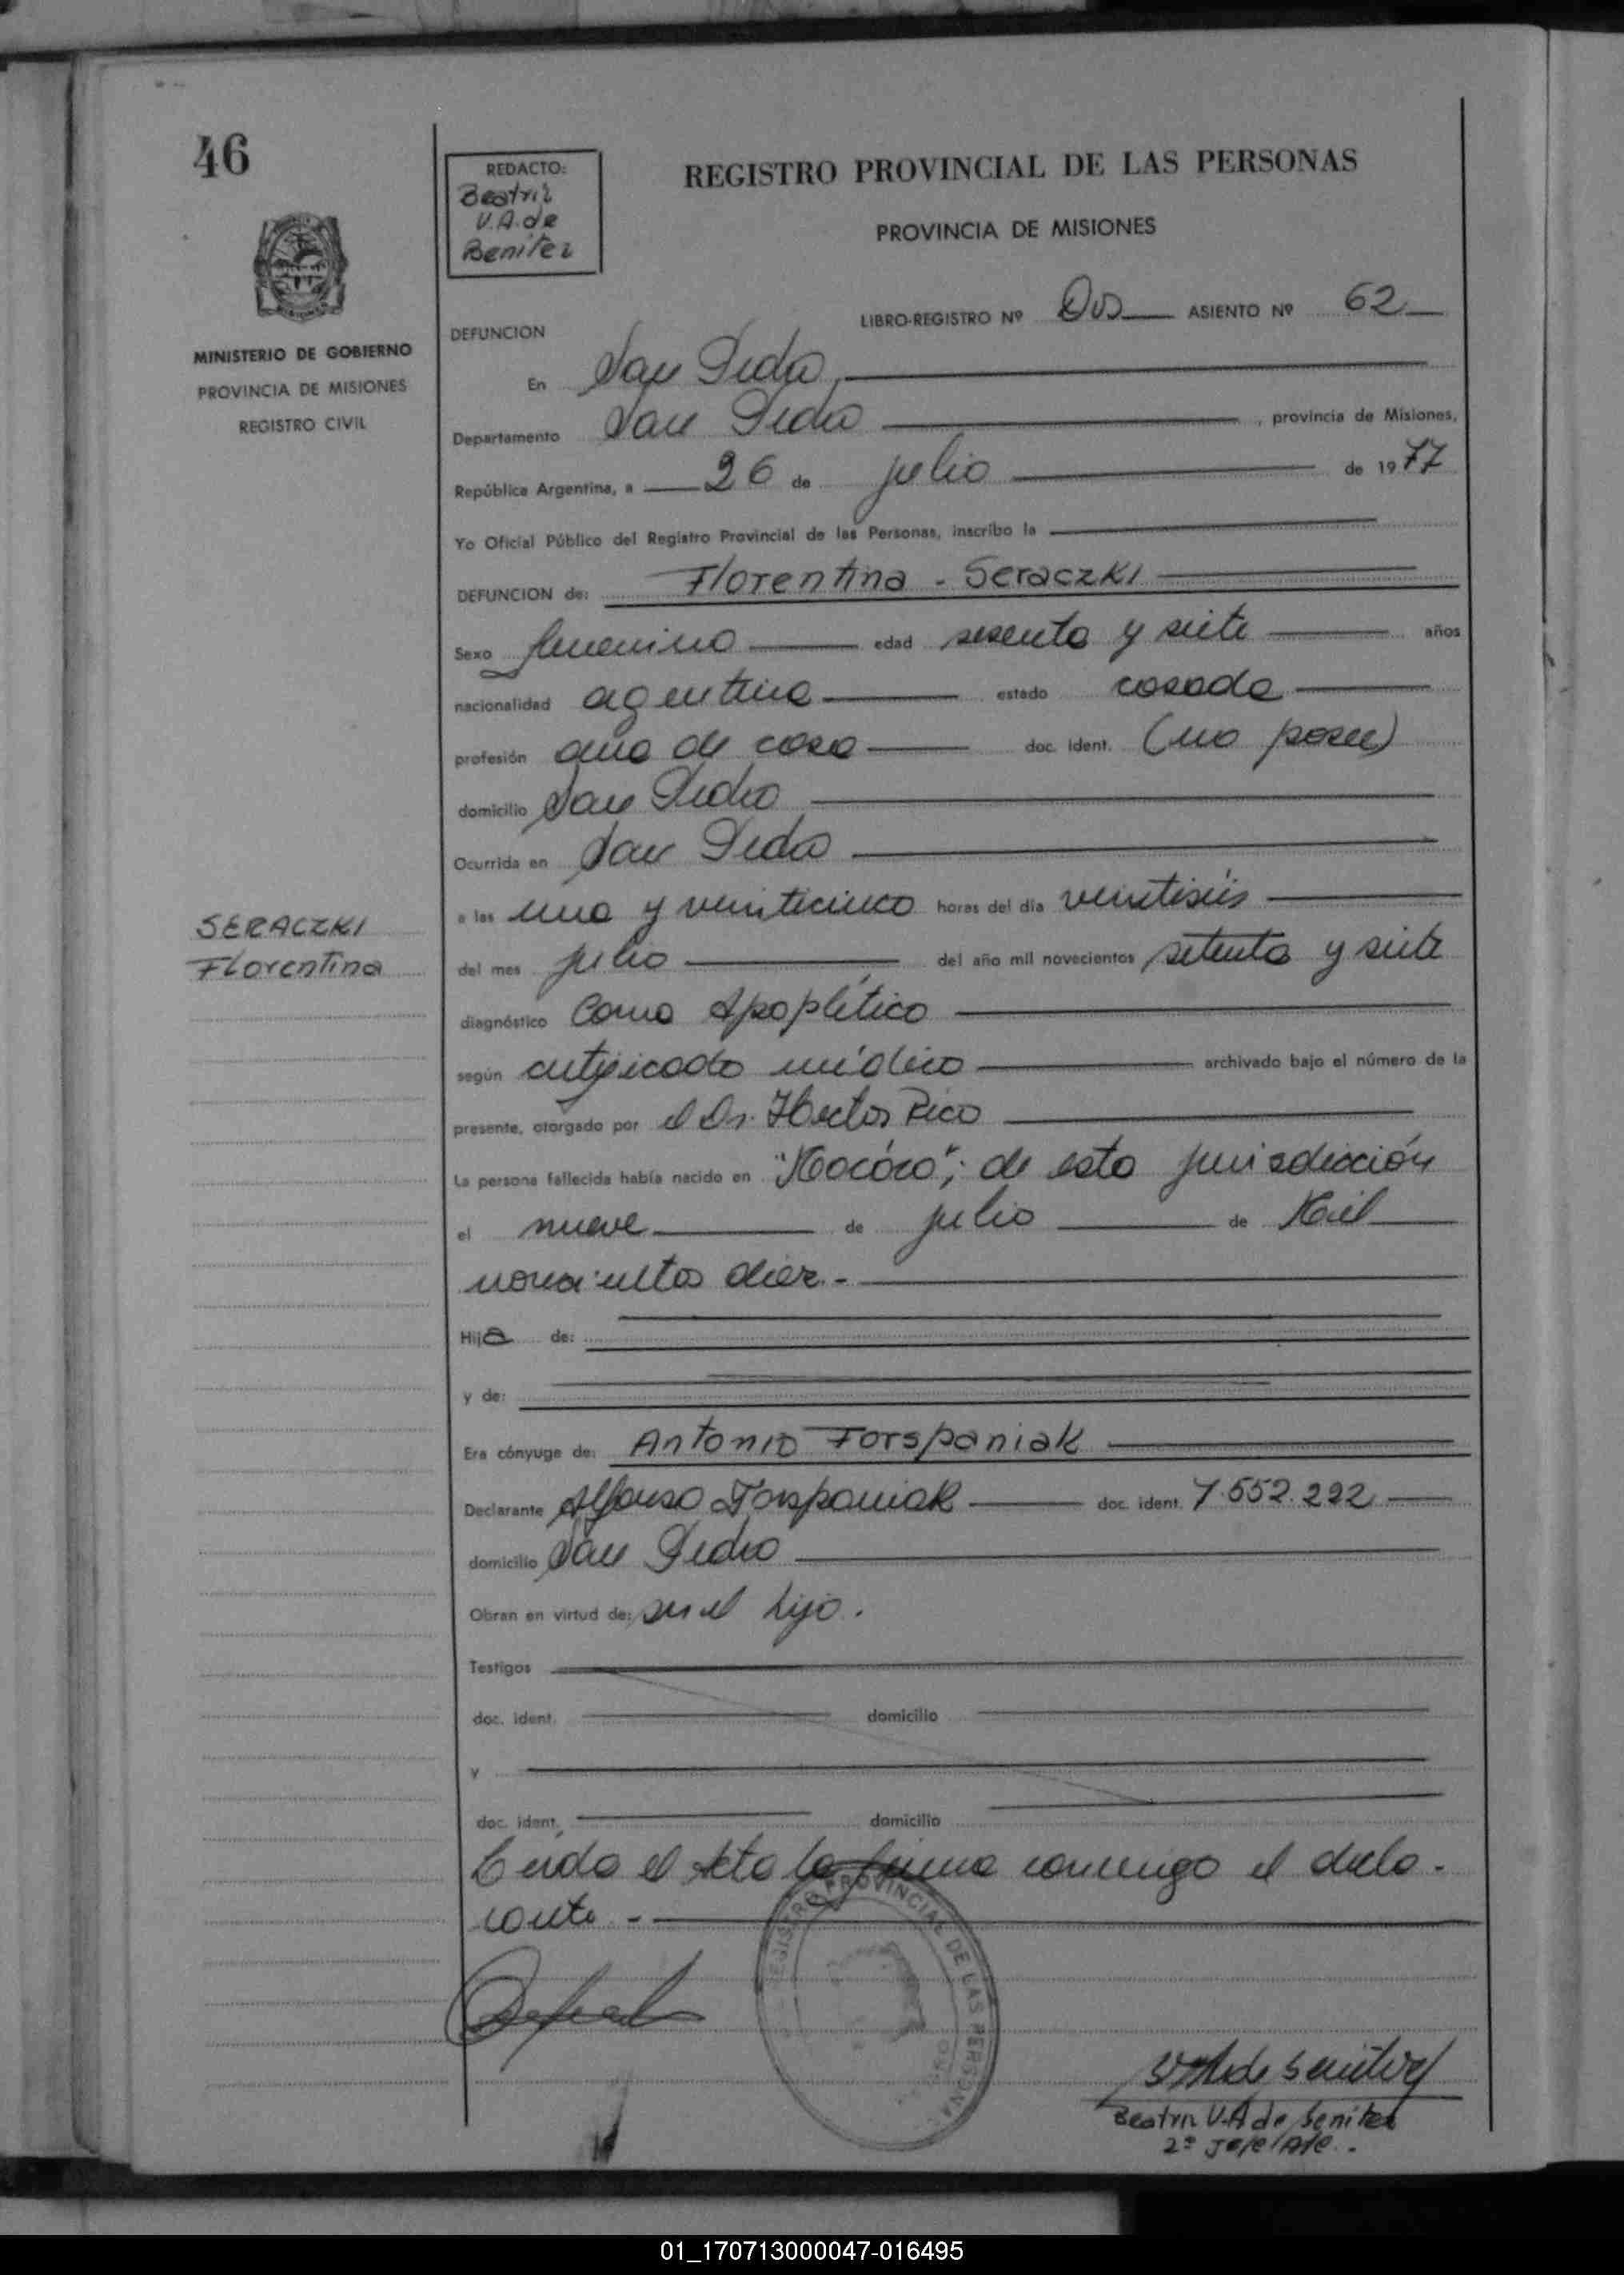 46
REDACTO:
Beatriz
V.A. de
Benítez
REGISTRO PROVINCIAL DE LAS PERSONAS
PROVINCIA DE MISIONES
MINISTERIO DE GOBIERNO
PROVINCIA DE MISIONES
REGISTRO CIVIL
LIBRO-REGISTRO Nº Dos ASIENTO Nº 62
DEFUNCION
En San Pedro,
Departamento San Pedro, provincia de Misiones,
República Argentina, a 26 de julio de 1977
Yo Oficial Público del Registro Provincial de las Personas, inscribo la
DEFUNCION de: Florentina - Seraczki
Sexo femenino edad sesenta y siete años
nacionalidad agentina estado casada
profesión ama de casa doc. ident. (no posee)
domicilio San Pedro
Ocurrida en San Pedro
a las una y veinticinco horas del día veintiséis
SERACZKI
Florentina
del mes julio del año mil novecientos setenta y siete
diagnóstico Coma Apoplético
según certificado médico archivado bajo el número de la
presente, otorgado por el Dr. Hector Rico
La persona fallecida había nacido en de esta jurisdicción
el nueve de julio de Mil
novecientos diez.-
Hija de:
y de:
Era cónyuge de: Antonio Forspaniak
Declarante Alfonso Forspaniak doc. ident. 7.552.292
domicilio San Pedro
Obran en virtud de: ser el hijo.
Testigos
doc. ident. domicilio
y
doc. ident. domicilio
Leida el Acta la firma conmigo el decla-
rante.-
REGISTRO PROVINCIAL DE LAS PERSONAS
V.A de Benitez
Beatriz V.A de Benítez
2º Jefe
01_170713000047-016495